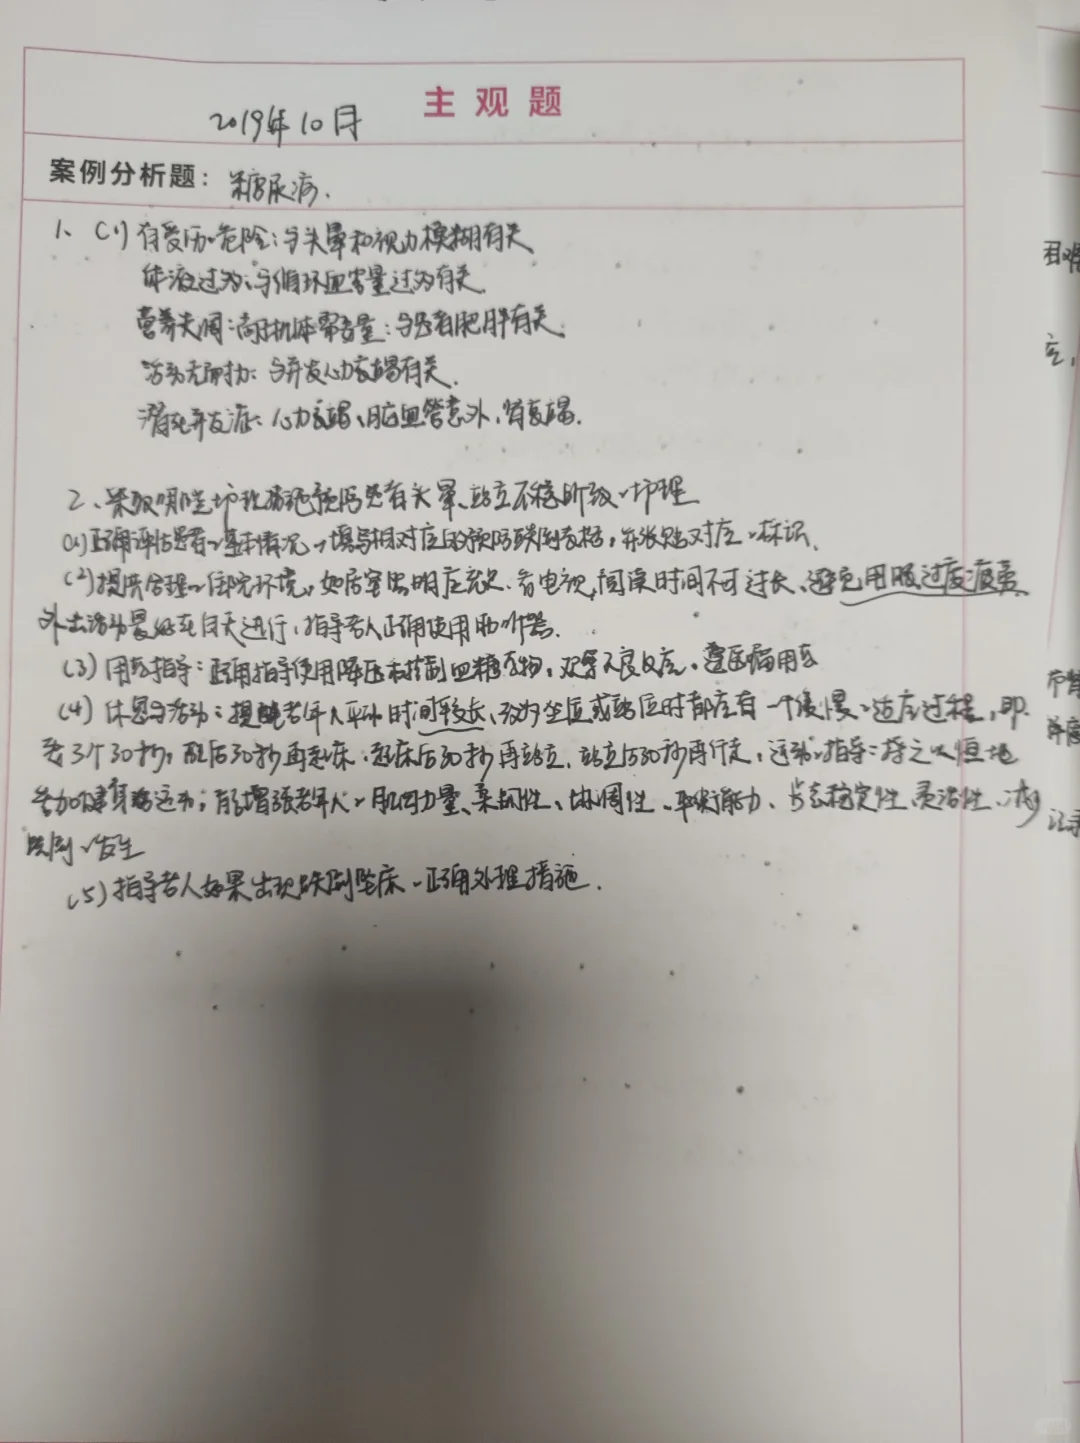 主观题
2019年10月
案例分析题：糖尿病.
1、(1) 有受伤的危险：与头晕和视力模糊有关
体液过多：与循环血容量过多有关.
营养失调：高于机体需要量：与患者肥胖有关.
活动无耐力：与并发心力衰竭有关.
潜在并发症：心力衰竭、脑血管意外、肾衰竭.
2、采取哪些护理措施预防患者头晕、站立不稳所致的护理
(1) 正确评估患者的基本情况，填写相对应的预防跌倒表格，并张贴对应的标识.
(2) 提供合理的住院环境，如居室照明应充足.看电视,阅读时间不可过长、避免用眼过度疲劳
外出活动最好在白天进行，指导老人正确使用助听器.
(3) 用药指导：正确指导使用降压和控制血糖药物，观察不良反应，遵医嘱用药
(4) 休息与活动：提醒老年人平卧时间较长、改为坐位或站位时都应有一个缓慢的适应过程，即
要3个30秒，醒后30秒再起床、起床后30秒再站立、站立后30秒再行走，运动的指导：持之以恒地
参加健身活运动；能增强老年人的肌肉力量、柔韧性、协调性、平衡能力、步态稳定性、灵活性、减少
跌倒的发生
(5) 指导老人如果出现跌倒坠床的正确处理措施.